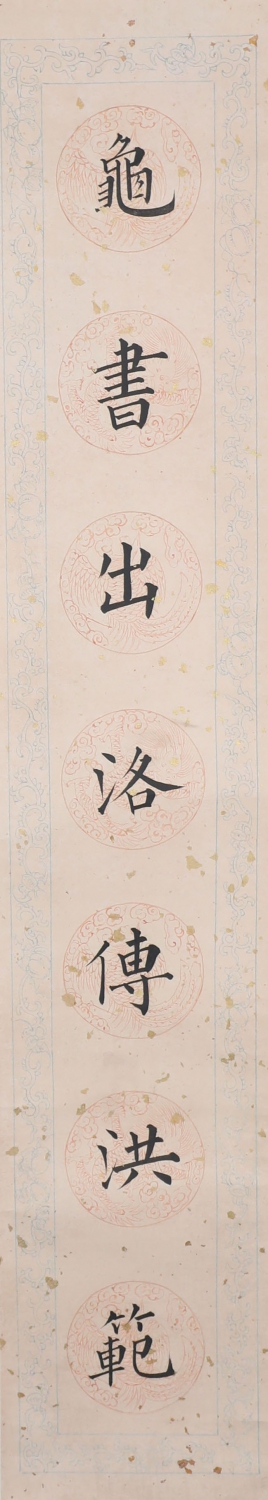 龜書出洛傳洪範